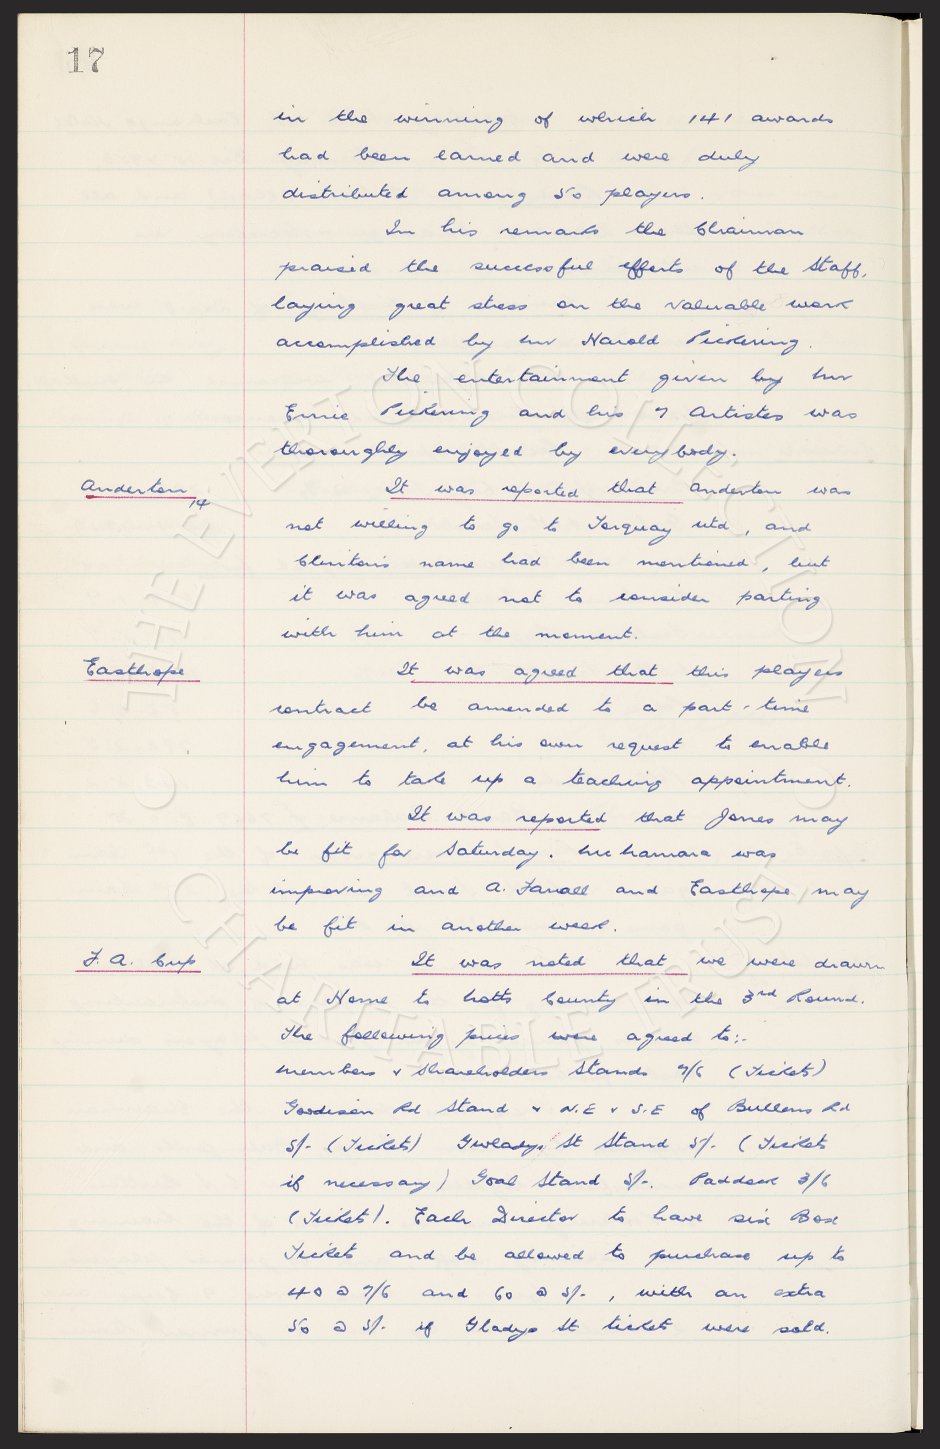 17
in the winning of which 141 awards
had been earned and were duly
distributed among 50 players.
In his remarks the Chairman
praised the successful efforts of the Staff,
laying great stress on the valuable work
accomplished by Mr Harold Pickering.
The entertainment given by Mr
Ernie Pickering and his 7 Artistes was
thoroughly enjoyed by everybody.
Anderton
14
It was reported that Anderton was
not willing to go to Torquay Utd, and
Clinton's name had been mentioned, but
it was agreed not to consider parting
with him at the moment.
Easthope
It was agreed that this players
contract be amended to a part-time
engagement, at his own request to enable
him to take up a teaching appointment.
It was reported that Jones may
be fit for Saturday. McNamara was
improving and A. Farrall and Easthope may
be fit in another week.
F.A. Cup
It was noted that we were drawn
at Home to Notts County in the 3rd Round.
The following prices were agreed to:-
Members & Shareholders Stands 7/6 (Tickets)
Goodison Rd Stand & N.E & S.E of Bullens Rd
5/- (Tickets) Gwladys St Stand 5/- (Tickets
if necessary) Goal Stand 5/-. Paddock 3/6
(Tickets). Each Director to have six Box
Tickets and be allowed to purchase up to
40 @ 7/6 and 60 @ 5/-, with an extra
50 @ 5/- if Gladys St tickets were sold.
© THE EVERTON COLLECTION
CHARITABLE TRUST